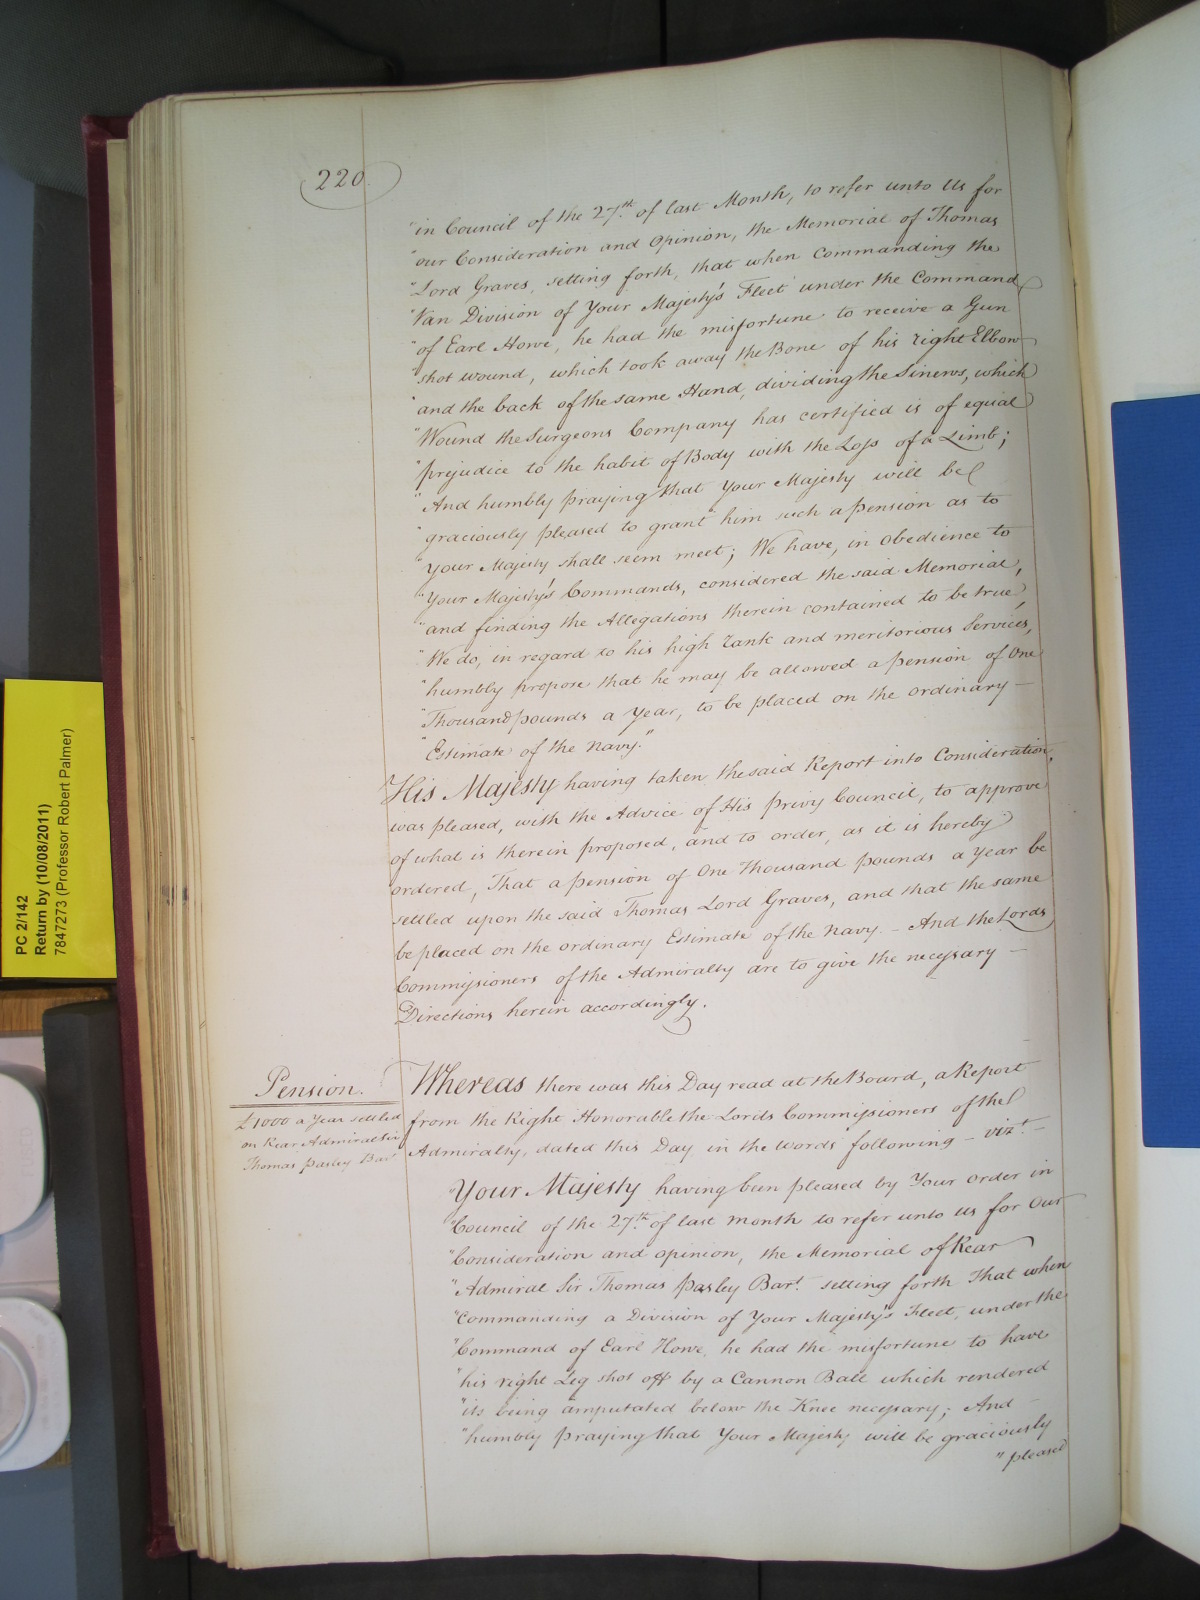 220
"in Council of the 27th. of last Month, to refer unto Us for
"our Consideration and Opinion, the Memorial of Thomas
"Lord Graves, setting forth, that when Commanding the
"Van Division of Your Majesty's Fleet under the Command
"of Earl Howe, he had the misfortune to receive a Gun
"shot wound, which took away the Bone of his right Elbow
"and the back of the same Hand, dividing the Sinews, which
"Wound the Surgeons Company has certified is of equal
"prejudice to the habit of Body with the Loss of a Limb;
"And humbly praying that Your Majesty will be
"graciously pleased to grant him such a pension as to
"Your Majesty shall seem meet; We have, in obedience to
"Your Majesty's Commands, considered the said Memorial,
"and finding the Allegations therein contained to be true,
"We do, in regard to his high rank and meritorious Services,
"humbly propose that he may be allowed a pension of One
"Thousand pounds a Year, to be placed on the ordinary –
"Estimate of the Navy."
His Majesty having taken the said Report into Consideration,
was pleased, with the Advice of His Privy Council, to approve
of what is therein proposed, and to order, as it is hereby
ordered, That a pension of One Thousand pounds a Year be
settled upon the said Thomas Lord Graves, and that the same
be placed on the ordinary Estimate of the Navy. – And the Lords
Commissioners of the Admiralty are to give the necessary –
Directions herein accordingly.
Pension.
£1000 a Year settled
on Rear Admiral Sir
Thomas Pasley Bart.
Whereas there was this Day read at the Board, a Report
from the Right Honorable the Lords Commissioners of the
Admiralty, dated this Day in the words following – vizt. –
Your Majesty having been pleased by Your Order in
"Council of the 27th. of last Month to refer unto us for Our
"Consideration and opinion, the Memorial of Rear
"Admiral Sir Thomas Pasley Bart. setting forth That when
"Commanding a Division of Your Majesty's Fleet, under the
"Command of Earl Howe, he had the misfortune to have
"his right Leg shot off by a Cannon Ball which rendered
"its being amputated below the Knee necessary; And –
"humbly praying that Your Majesty will be graciously
"pleased
PC 2/142
Return by (10/08/2011)
7847273 (Professor Robert Palmer)